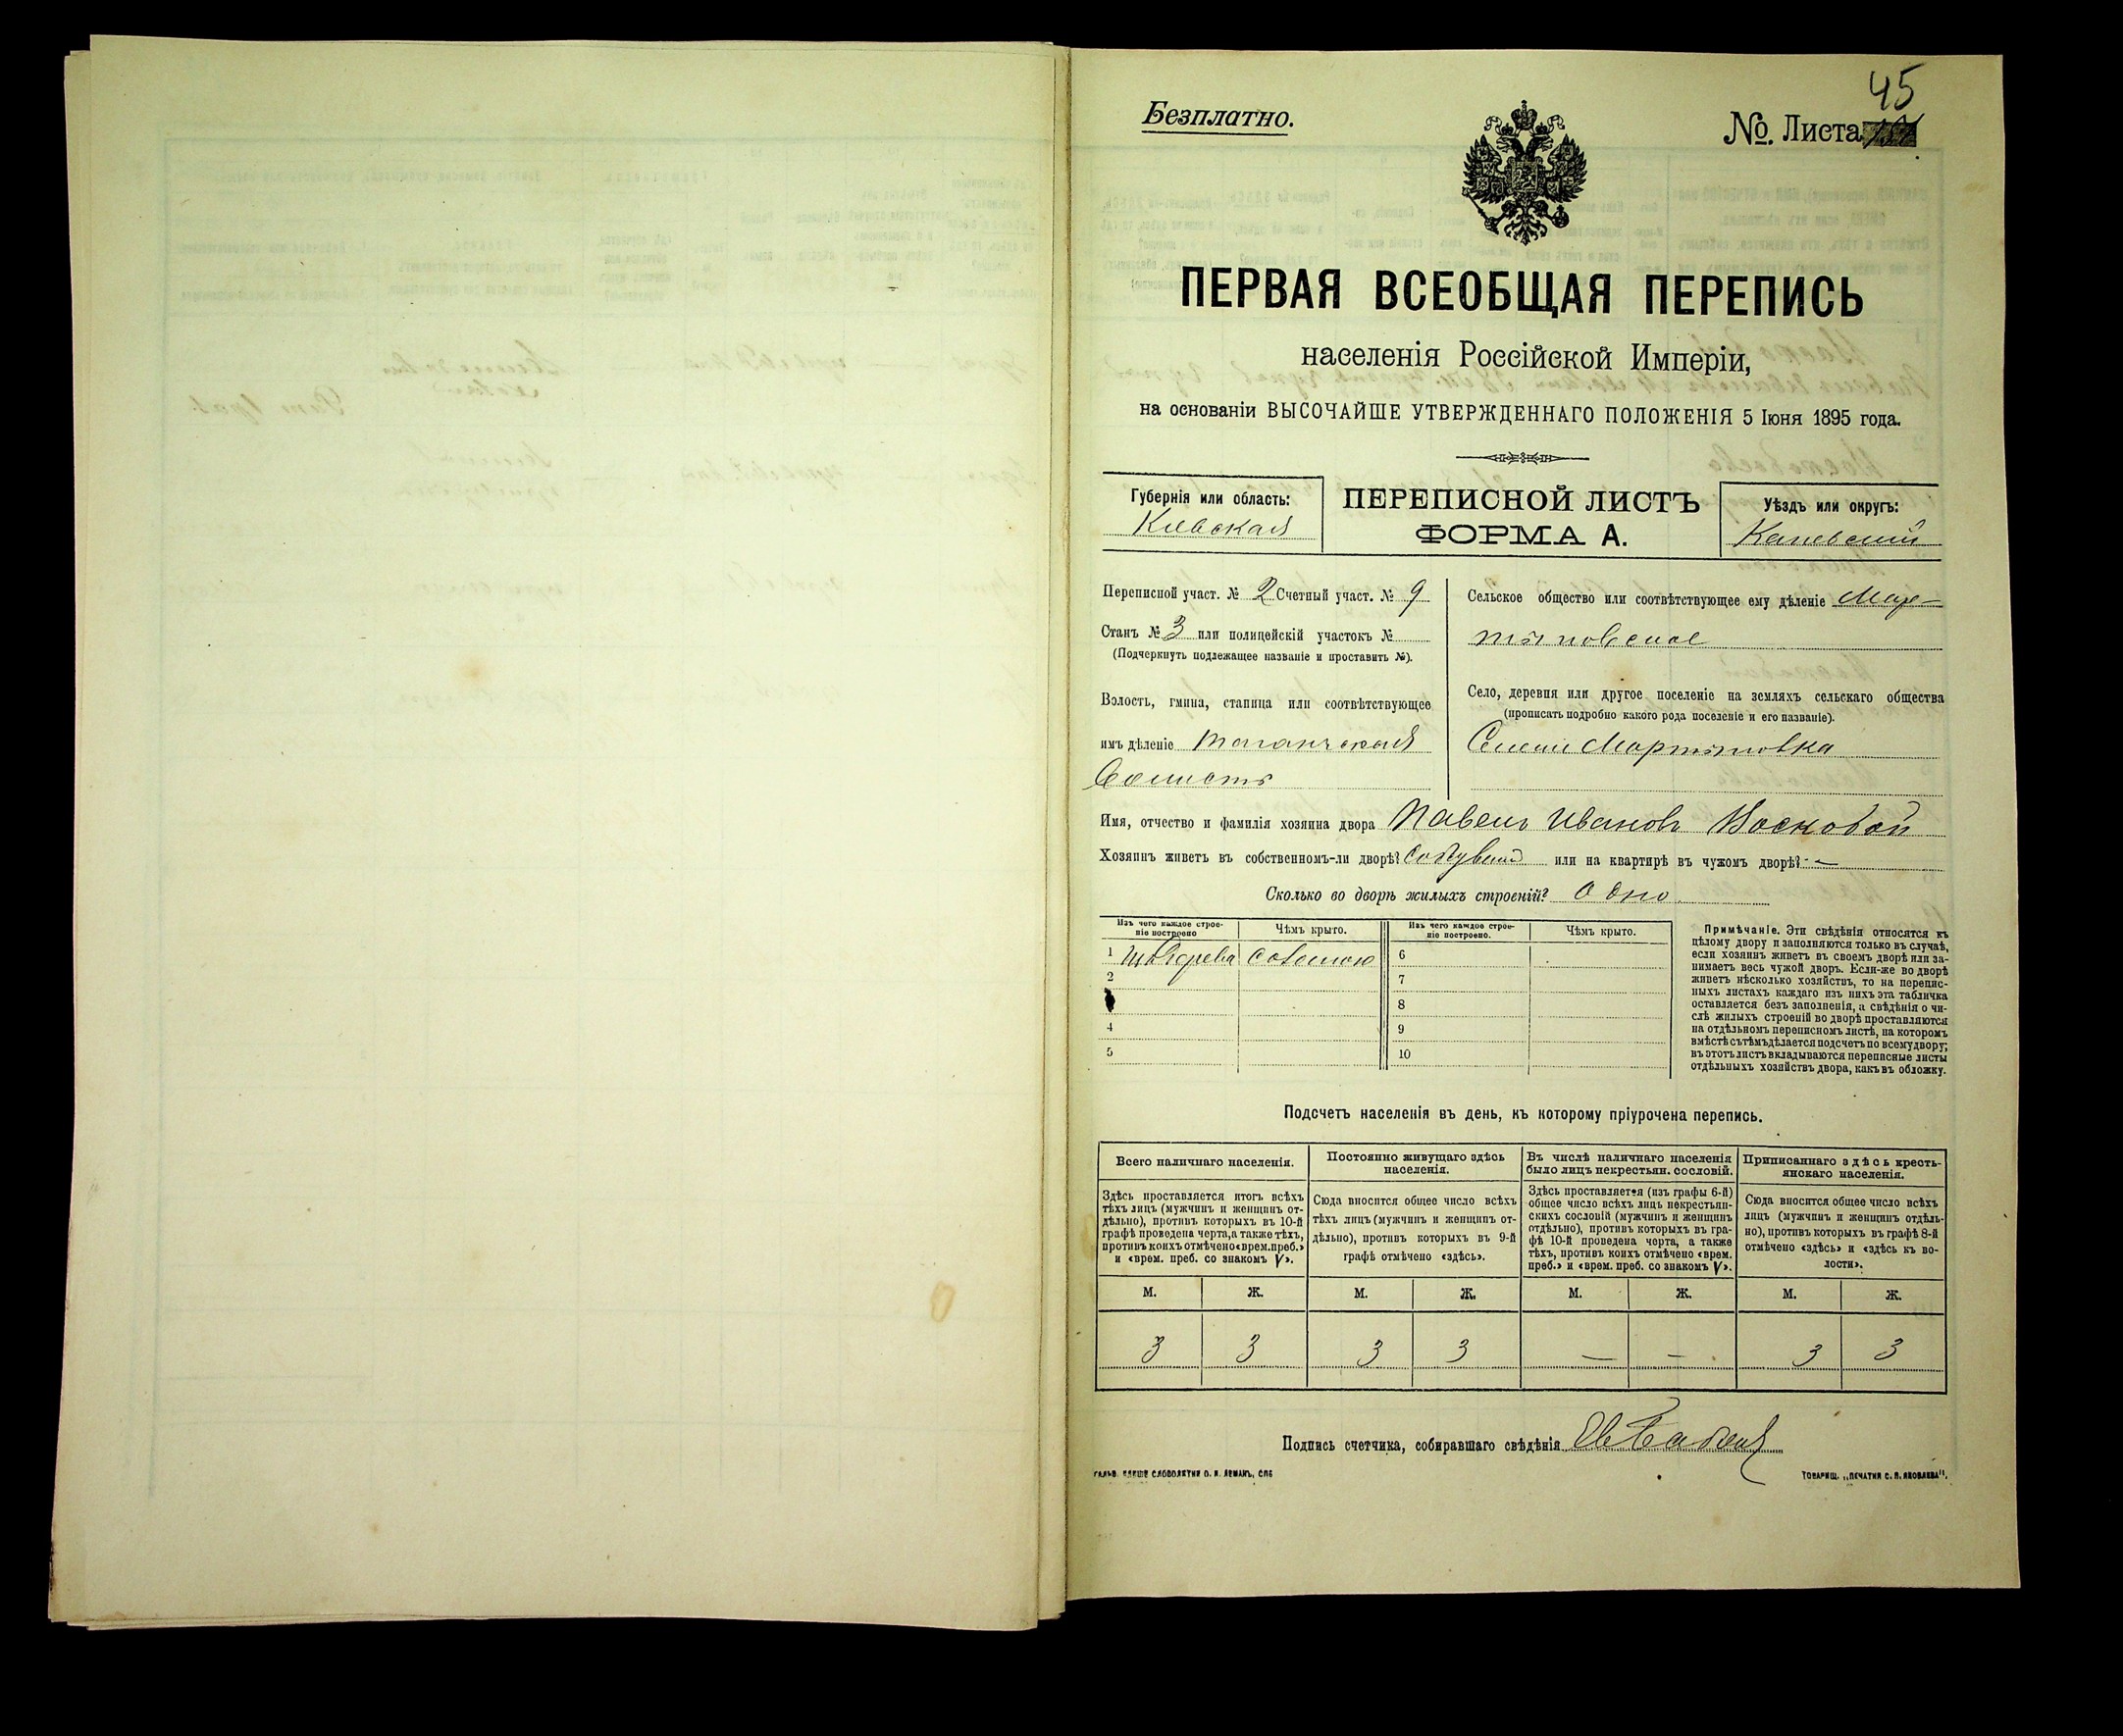 45
Безплатно.
№. Листа
ПЕРВАЯ ВСЕОБЩАЯ ПЕРЕПИСЬ
населенія Россійской Имперіи,
на основаніи ВЫСОЧАЙШЕ УТВЕРЖДЕННАГО ПОЛОЖЕНІЯ 5 Іюня 1895 года.
Губернія или область:
Кіевская
ПЕРЕПИСНОЙ ЛИСТЪ
ФОРМА А.
Уѣздъ или округъ:
Каневскій
Переписной участ. № 2 Счетный участ. № 9
Станъ № 3 или полицейскій участокъ №
(Подчеркнуть подлежащее названіе и проставить №).
Волость, гмина, станица или соотвѣтствующее
имъ дѣленіе Таганчская
Волость
Сельское общество или соотвѣтствующее ему дѣленіе Мар-
тыновское
Село, деревня или другое поселеніе на земляхъ сельскаго общества
(прописать подробно какого рода поселеніе и его названіе).
Селеніе Мартыновка
Имя, отчество и фамилія хозяина двора Павелъ Ивановъ
Хозяинъ живетъ въ собственномъ-ли дворѣ? или на квартирѣ въ чужомъ дворѣ? —
Сколько во дворѣ жилыхъ строеній? Одно
Изъ чего каждое строе-
ніе построено
Чѣмъ крыто.
Изъ чего каждое строе-
ніе построено.
Чѣмъ крыто.
1 изъ дерева соломою
2
4
5
6
7
8
9
10
Примѣчаніе. Эти свѣдѣнія относятся къ
цѣлому двору и заполняются только въ случаѣ,
если хозяинъ живетъ въ своемъ дворѣ или за-
нимаетъ весь чужой дворъ. Если-же во дворѣ
живетъ нѣсколько хозяйствъ, то на перепис-
ныхъ листахъ каждаго изъ нихъ эта табличка
оставляется безъ заполненія, а свѣдѣнія о чи-
слѣ жилыхъ строеній во дворѣ проставляются
на отдѣльномъ переписномъ листѣ, на которомъ
вмѣстѣ съ тѣмъ дѣлается подсчетъ по всему двору;
въ этотъ листъ вкладываются переписные листы
отдѣльныхъ хозяйствъ двора, какъ въ обложку.
Подсчетъ населенія въ день, къ которому пріурочена перепись.
Всего наличнаго населенія.
Здѣсь проставляется итогъ всѣхъ
тѣхъ лицъ (мужчинъ и женщинъ от-
дѣльно), противъ которыхъ въ 10-й
графѣ проведена черта, а также тѣхъ,
противъ коихъ отмѣчено «врем. преб.»
и «врем. преб. со знакомъ V».
Постоянно живущаго здѣсь
населенія.
Сюда вносится общее число всѣхъ
тѣхъ лицъ (мужчинъ и женщинъ от-
дѣльно), противъ которыхъ въ 9-й
графѣ отмѣчено «здѣсь».
Въ числѣ наличнаго населенія
было лицъ некрестьян. сословій.
Здѣсь проставляется (изъ графы 6-й)
общее число всѣхъ лицъ некрестьян-
скихъ сословій (мужчинъ и женщинъ
отдѣльно), противъ которыхъ въ гра-
фѣ 10-й проведена черта, а также
тѣхъ, противъ коихъ отмѣчено «врем.
преб.» и «врем. преб. со знакомъ V».
Приписаннаго здѣсь кресть-
янскаго населенія.
Сюда вносится общее число всѣхъ
лицъ (мужчинъ и женщинъ отдѣль-
но), противъ которыхъ въ графѣ 8-й
отмѣчено «здѣсь» и «здѣсь къ во-
лости».
М. Ж. М. Ж. М. Ж. М. Ж.
3 3 3 3 — — 3 3
Подпись счетчика, собиравшаго свѣдѣнія
ГАЛЬВ. КЛИШЕ СЛОВОЛИТНИ О. И. ЛЕМАНЪ, СПБ
ТОВАРИЩ. „ПЕЧАТНЯ С. П. ЯКОВЛЕВА".